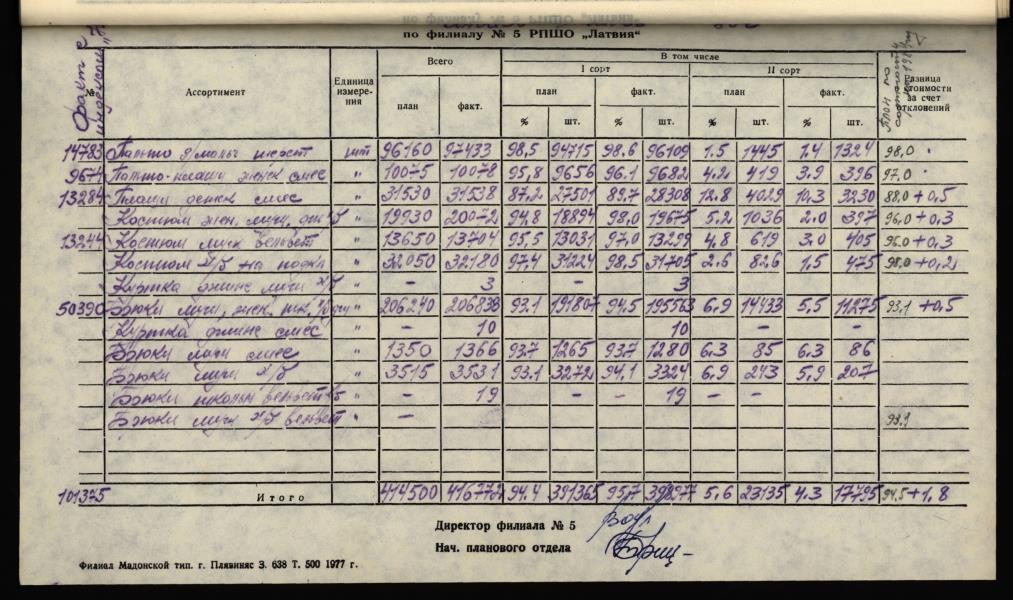 по филиалу № 5 РПШО „Латвия“
Факт с
№
Ассортимент
Единица измере- ния
Всего
план
факт.
В том числе
I сорт
план
факт.
II сорт
план
факт.
% шт. % шт. % шт. % шт.
План по
Разница стоимости за счет отклонений
14783 Пальто д/мольч шерст шт 96160 97433 98,5 94715 98.6 96109 1.5 1445 1.4 1324 98,0
9674 Пальто-плащи женск смес " 10075 10078 95,8 9656 96.1 9682 4.2 419 3.9 396 97,0
13284 Плащи детск смес " 31530 31538 87,2 27501 89,7 28308 12.8 4029 10,3 3230 88,0 +0,5
Костюм жен. " 19930 20072 94,8 18894 98,0 19675 5,2 1036 2.0 397 96,0 +0,3
13244 Костюм вельвет " 13650 13704 95,5 13031 97,0 13299 4,8 619 3,0 405 96.0 +0,3
Костюм х/б на подкл " 32050 32180 97,4 31224 98,5 31705 2.6 826 1,5 475 98,0 +0,2
Куртка джинс х/б " – 3 – 3
50390 Брюки жен. " 206240 206838 93.1 191807 94,5 195563 6,9 14433 5,5 11275 93,1 +0,5
Куртка джинс смес " – 10 10 – –
Брюки смес " 1350 1366 93.7 1265 93.7 1280 6.3 85 6.3 86
Брюки х/б " 3515 3531 93.1 3272 94,1 3324 6,9 243 5,9 207
Брюки школьн вельвет " – 19 – – 19 – –
Брюки х/б вельвет " – 93,1
101375 Итого 414500 416772 94.4 391365 95,7 398977 5,6 23135 4.3 17795 94,5 +1,8
Директор филиала № 5
Нач. планового отдела
Филиал Мадонской тип. г. Плявиняс З. 638 Т. 500 1977 г.